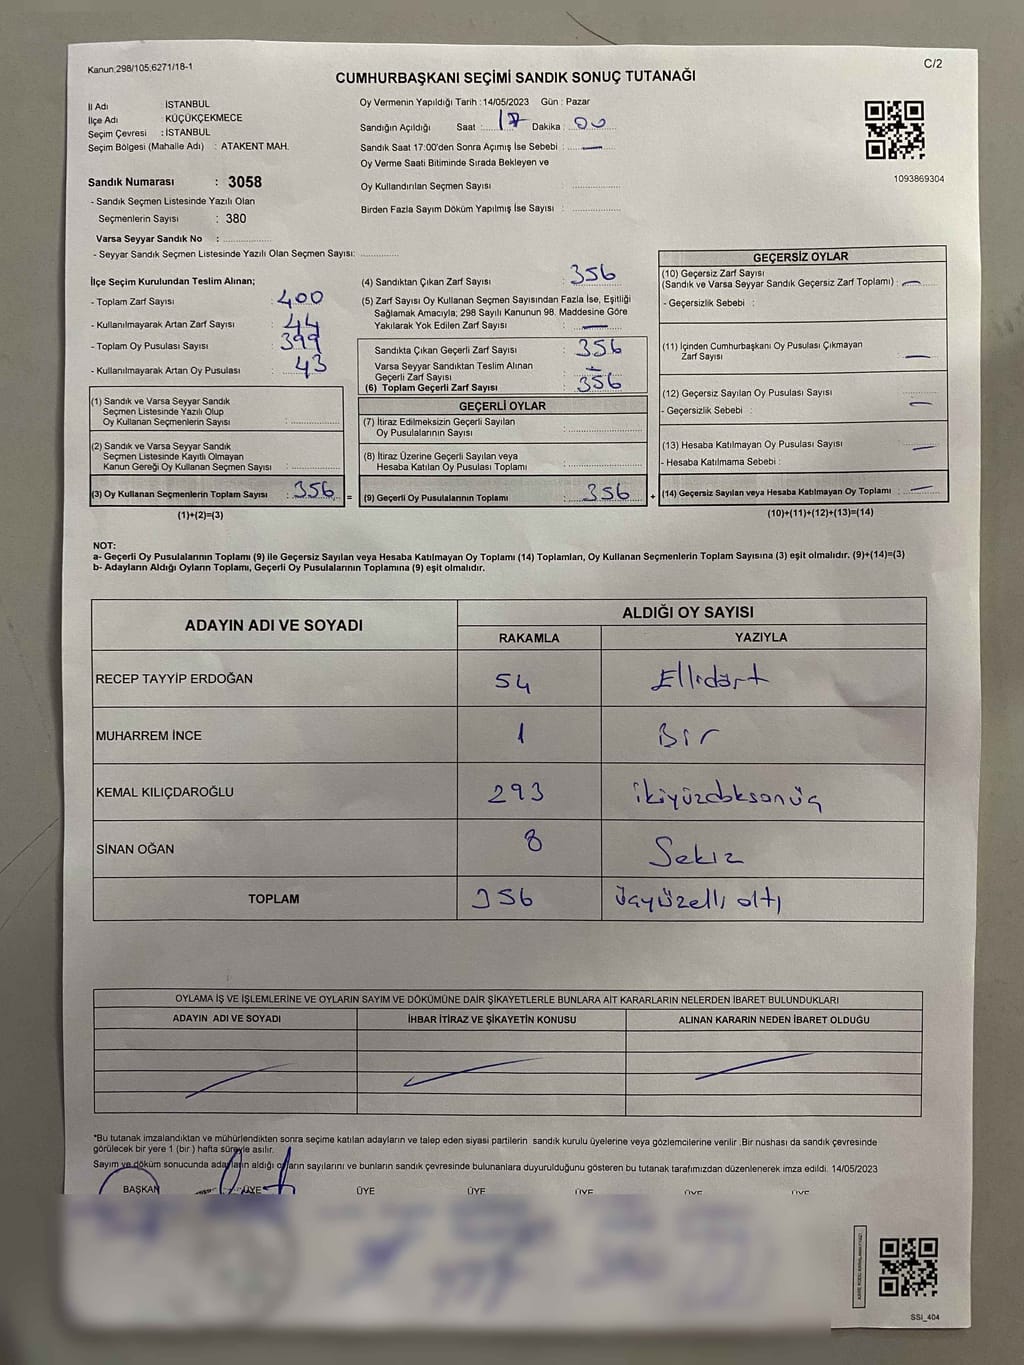 Kanun;298/105,6271/18-1
C/2
CUMHURBAŞKANI SEÇİMİ SANDIK SONUÇ TUTANAĞI
İl Adı : İSTANBUL
İlçe Adı : KÜÇÜKÇEKMECE
Seçim Çevresi : İSTANBUL
Seçim Bölgesi (Mahalle Adı) : ATAKENT MAH.
Sandık Numarası : 3058
- Sandık Seçmen Listesinde Yazılı Olan
Seçmenlerin Sayısı : 380
Varsa Seyyar Sandık No :
- Seyyar Sandık Seçmen Listesinde Yazılı Olan Seçmen Sayısı:
Oy Vermenin Yapıldığı Tarih : 14/05/2023 Gün : Pazar
Sandığın Açıldığı Saat : 17 Dakika : 00
Sandık Saat 17:00'den Sonra Açımış İse Sebebi : —
Oy Verme Saati Bitiminde Sırada Bekleyen ve
Oy Kullandırılan Seçmen Sayısı :
Birden Fazla Sayım Döküm Yapılmış İse Sayısı :
1093869304
İlçe Seçim Kurulundan Teslim Alınan;
- Toplam Zarf Sayısı : 400
- Kullanılmayarak Artan Zarf Sayısı : 44
- Toplam Oy Pusulası Sayısı : 399
- Kullanılmayarak Artan Oy Pusulası : 43
(1) Sandık ve Varsa Seyyar Sandık
Seçmen Listesinde Yazılı Olup
Oy Kullanan Seçmenlerin Sayısı :
(2) Sandık ve Varsa Seyyar Sandık
Seçmen Listesinde Kayıtlı Olmayan
Kanun Gereği Oy Kullanan Seçmen Sayısı :
(3) Oy Kullanan Seçmenlerin Toplam Sayısı : 356 =
(1)+(2)=(3)
(4) Sandıktan Çıkan Zarf Sayısı : 356
(5) Zarf Sayısı Oy Kullanan Seçmen Sayısından Fazla İse, Eşitliği
Sağlamak Amacıyla; 298 Sayılı Kanunun 98. Maddesine Göre
Yakılarak Yok Edilen Zarf Sayısı : —
Sandıkta Çıkan Geçerli Zarf Sayısı : 356
Varsa Seyyar Sandıktan Teslim Alınan
Geçerli Zarf Sayısı : —
(6) Toplam Geçerli Zarf Sayısı : 356
GEÇERLİ OYLAR
(7) İtiraz Edilmeksizin Geçerli Sayılan
Oy Pusulalarının Sayısı :
(8) İtiraz Üzerine Geçerli Sayılan veya
Hesaba Katılan Oy Pusulası Toplamı :
(9) Geçerli Oy Pusulalarının Toplamı : 356 +
GEÇERSİZ OYLAR
(10) Geçersiz Zarf Sayısı
(Sandık ve Varsa Seyyar Sandık Geçersiz Zarf Toplamı) : —
- Geçersizlik Sebebi :
(11) İçinden Cumhurbaşkanı Oy Pusulası Çıkmayan
Zarf Sayısı : —
(12) Geçersiz Sayılan Oy Pusulası Sayısı :
- Geçersizlik Sebebi : —
(13) Hesaba Katılmayan Oy Pusulası Sayısı : —
- Hesaba Katılmama Sebebi :
(14) Geçersiz Sayılan veya Hesaba Katılmayan Oy Toplamı : —
(10)+(11)+(12)+(13)=(14)
NOT:
a- Geçerli Oy Pusulalarının Toplamı (9) ile Geçersiz Sayılan veya Hesaba Katılmayan Oy Toplamı (14) Toplamları, Oy Kullanan Seçmenlerin Toplam Sayısına (3) eşit olmalıdır. (9)+(14)=(3)
b- Adayların Aldığı Oyların Toplamı, Geçerli Oy Pusulalarının Toplamına (9) eşit olmalıdır.
ADAYIN ADI VE SOYADI
ALDIĞI OY SAYISI
RAKAMLA YAZIYLA
RECEP TAYYİP ERDOĞAN 54 Ellidört
MUHARREM İNCE 1 Bir
KEMAL KILIÇDAROĞLU 293 ikiyüzdoksanüç
SİNAN OĞAN 8 Sekiz
TOPLAM 356 üçyüzelli altı
OYLAMA İŞ VE İŞLEMLERİNE VE OYLARIN SAYIM VE DÖKÜMÜNE DAİR ŞİKAYETLERLE BUNLARA AİT KARARLARIN NELERDEN İBARET BULUNDUKLARI
ADAYIN ADI VE SOYADI İHBAR İTİRAZ VE ŞİKAYETİN KONUSU ALINAN KARARIN NEDEN İBARET OLDUĞU
*Bu tutanak imzalandıktan ve mühürlendikten sonra seçime katılan adayların ve talep eden siyasi partilerin sandık kurulu üyelerine veya gözlemcilerine verilir .Bir nüshası da sandık çevresinde
görülecek bir yere 1 (bir ) hafta süreyle asılır.
Sayım ve döküm sonucunda adayların aldığı oyların sayılarını ve bunların sandık çevresinde bulunanlara duyurulduğunu gösteren bu tutanak tarafımızdan düzenlenerek imza edildi. 14/05/2023
BAŞKAN ÜYE ÜYE ÜYE ÜYE ÜYE ÜYE
SSI_404